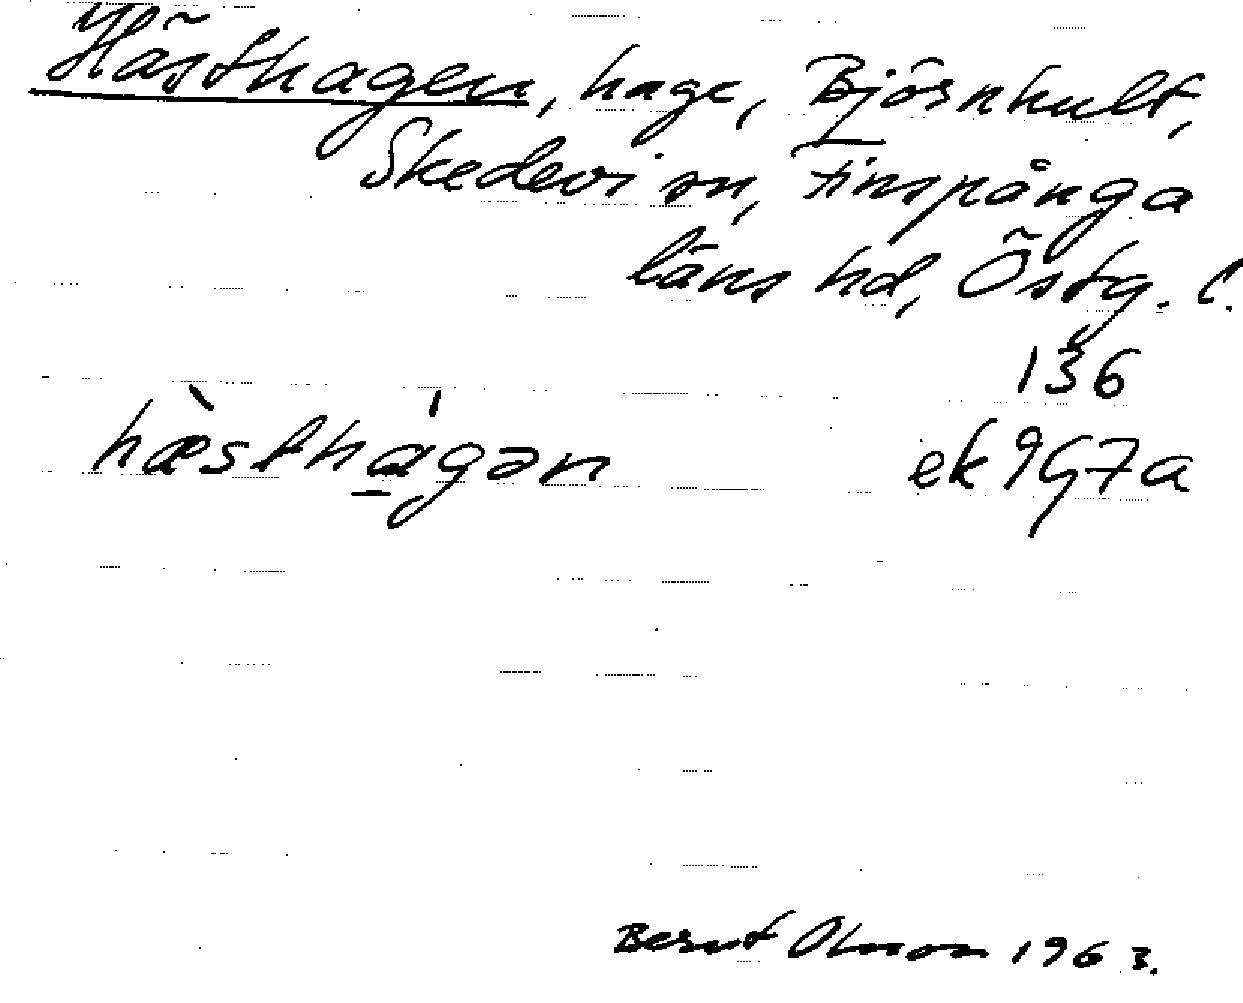 Hästhagen, hage, Björnhult,
Skedevi sn, Finspånga
läns hd, Östg. l.
136
hæ̀sthá̱gən ek 9G7a
Bernt Olsson 1963.